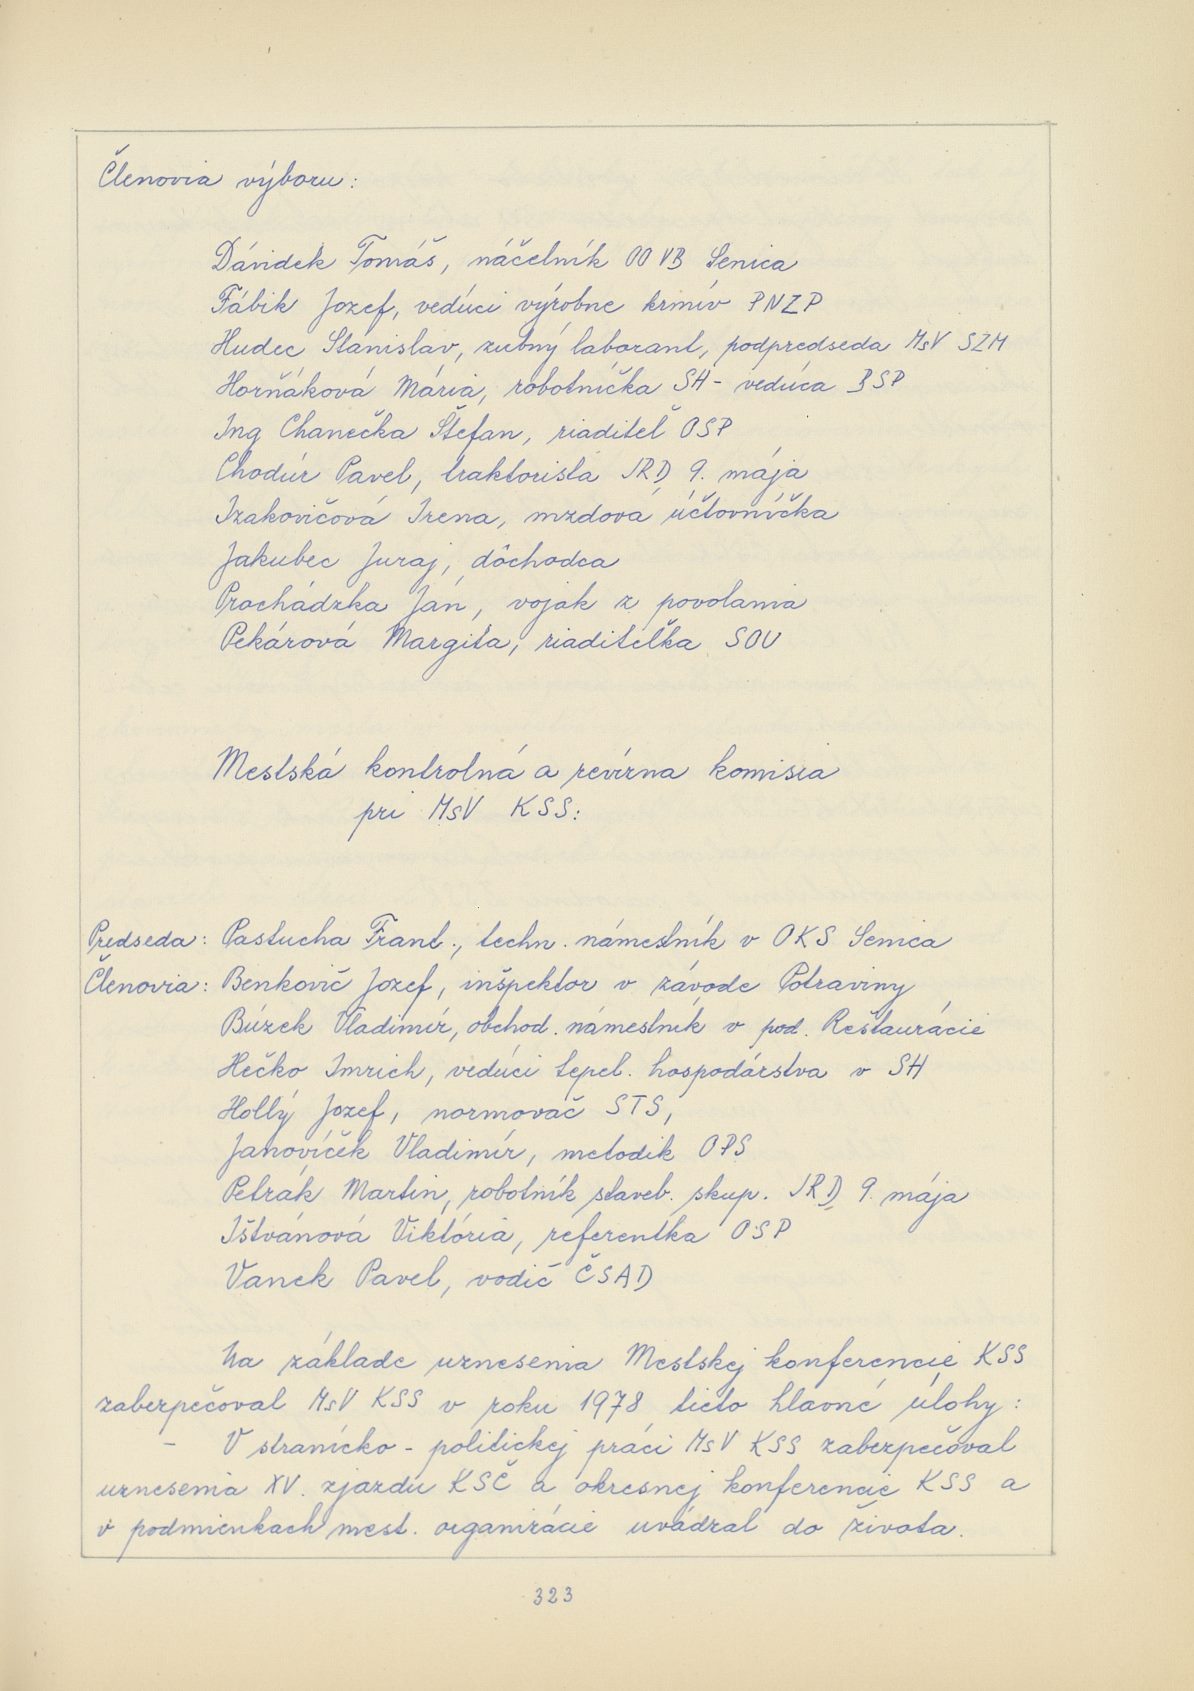 Členovia výboru:
Dávidek Tomáš, náčelník OO VB Senica
Fábik Jozef, vedúci výrobne krmív PNZP
Hudec Stanislav, zubný laborant, podpredseda MsV SZM
Horňáková Mária, robotníčka SH - vedúca BSP
Ing Chanečka Štefan, riaditeľ OSP
Chodúr Pavel, traktorista JRD 9. mája
Izakovičová Irena, mzdová účtovníčka
Jakubec Juraj, dôchodca
Procházka Ján, vojak z povolania
Pekárová Margita, riaditeľka SOU
Mestská kontrolná a revízna komisia
pri MsV KSS:
Predseda: Pastucha Frant., techn. námestník v OKS Senica
Členovia: Benkovič Jozef, inšpektor v závode Potraviny
Búzek Vladimír, obchod. námestník v pod. Reštaurácie
Hečko Imrich, vedúci tepel. hospodárstva v SH
Hollý Jozef, normovač STS,
Janovíček Vladimír, metodik OPS
Petrák Martin, robotník staveb. skup. JRD 9. mája
Ištvánová Viktória, referentka OSP
Vanek Pavel, vodič ČSAD
Na základe uznesenia Mestskej konferencie KSS
zabezpečoval MsV KSS v roku 1978 tieto hlavné úlohy:
- V stranícko - politickej práci MsV KSS zabezpečoval
uznesenia XV. zjazdu KSČ a okresnej konferencie KSS a
v podmienkach mest. organizácie uvádzal do života.
323